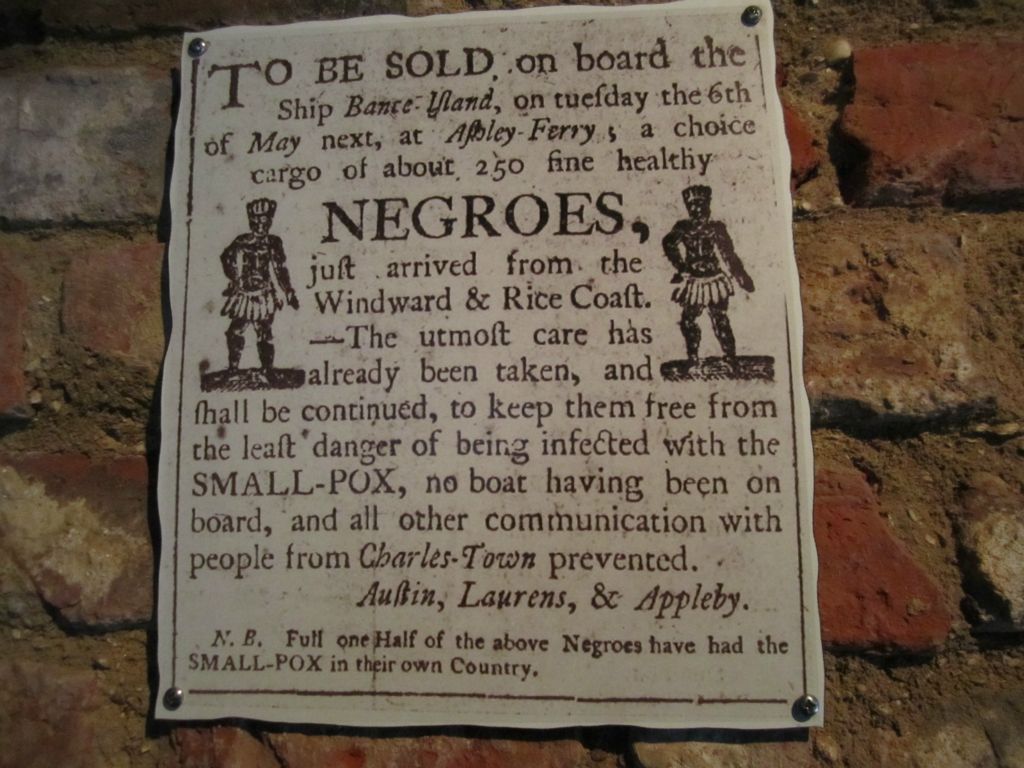 TO BE SOLD, on board the
Ship Bance-Iſland, on tueſday the 6th
of May next, at Aſhley-Ferry; a choice
cargo of about 250 fine healthy
NEGROES,
juſt arrived from the
Windward & Rice Coaſt.
—The utmoſt care has
already been taken, and
ſhall be continued, to keep them free from
the leaſt danger of being infected with the
SMALL-POX, no boat having been on
board, and all other communication with
people from Charles-Town prevented.
Auſtin, Laurens, & Appleby.
N. B. Full one Half of the above Negroes have had the
SMALL-POX in their own Country.